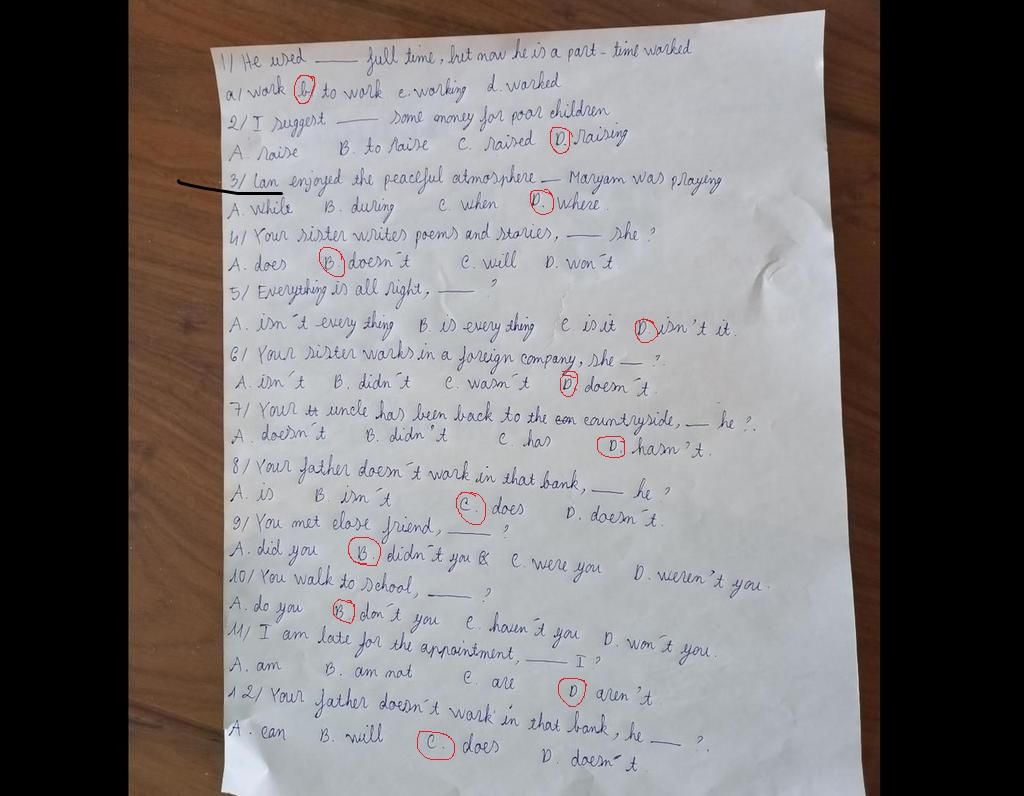 1/ He used ____ full time, but now he is a part-time worked
a/ work b/ to work c. working d. worked
2/ I suggest ____ some money for poor children
A. raise B. to raise C. raised D. raising
3/ Can enjoyed the peaceful atmosphere __ Maryam was praying
A. while B. during C. when D. where.
4/ Your sister writes poems and stories, ____ she?
A. does B. doesn't C. will D. won't
5/ Everything is all right, ____ ?
A. isn't every thing B. is every thing C is it D. isn't it.
6/ Your sister works in a foreign company, she ___ ?.
A. isn't B. didn't C. wasn't D. doesn't.
7/ Your uncle has been back to the countryside, __ he?.
A. doesn't B. didn't C. has D. hasn't.
8/ Your father doesn't work in that bank, ___ he?
A. is B. isn't C. does D. doesn't.
9/ You met close friend, ____ ?
A. did you B. didn't you C. were you D. weren't you.
10/ You walk to school, ____ ?
A. do you B don't you C. haven't you D. won't you.
11/ I am late for the appointment, ____ I?
A. am B. am not C. are D aren't.
12/ Your father doesn't work in that bank, he ___ ?.
A. can B. will C. does D. doesn't